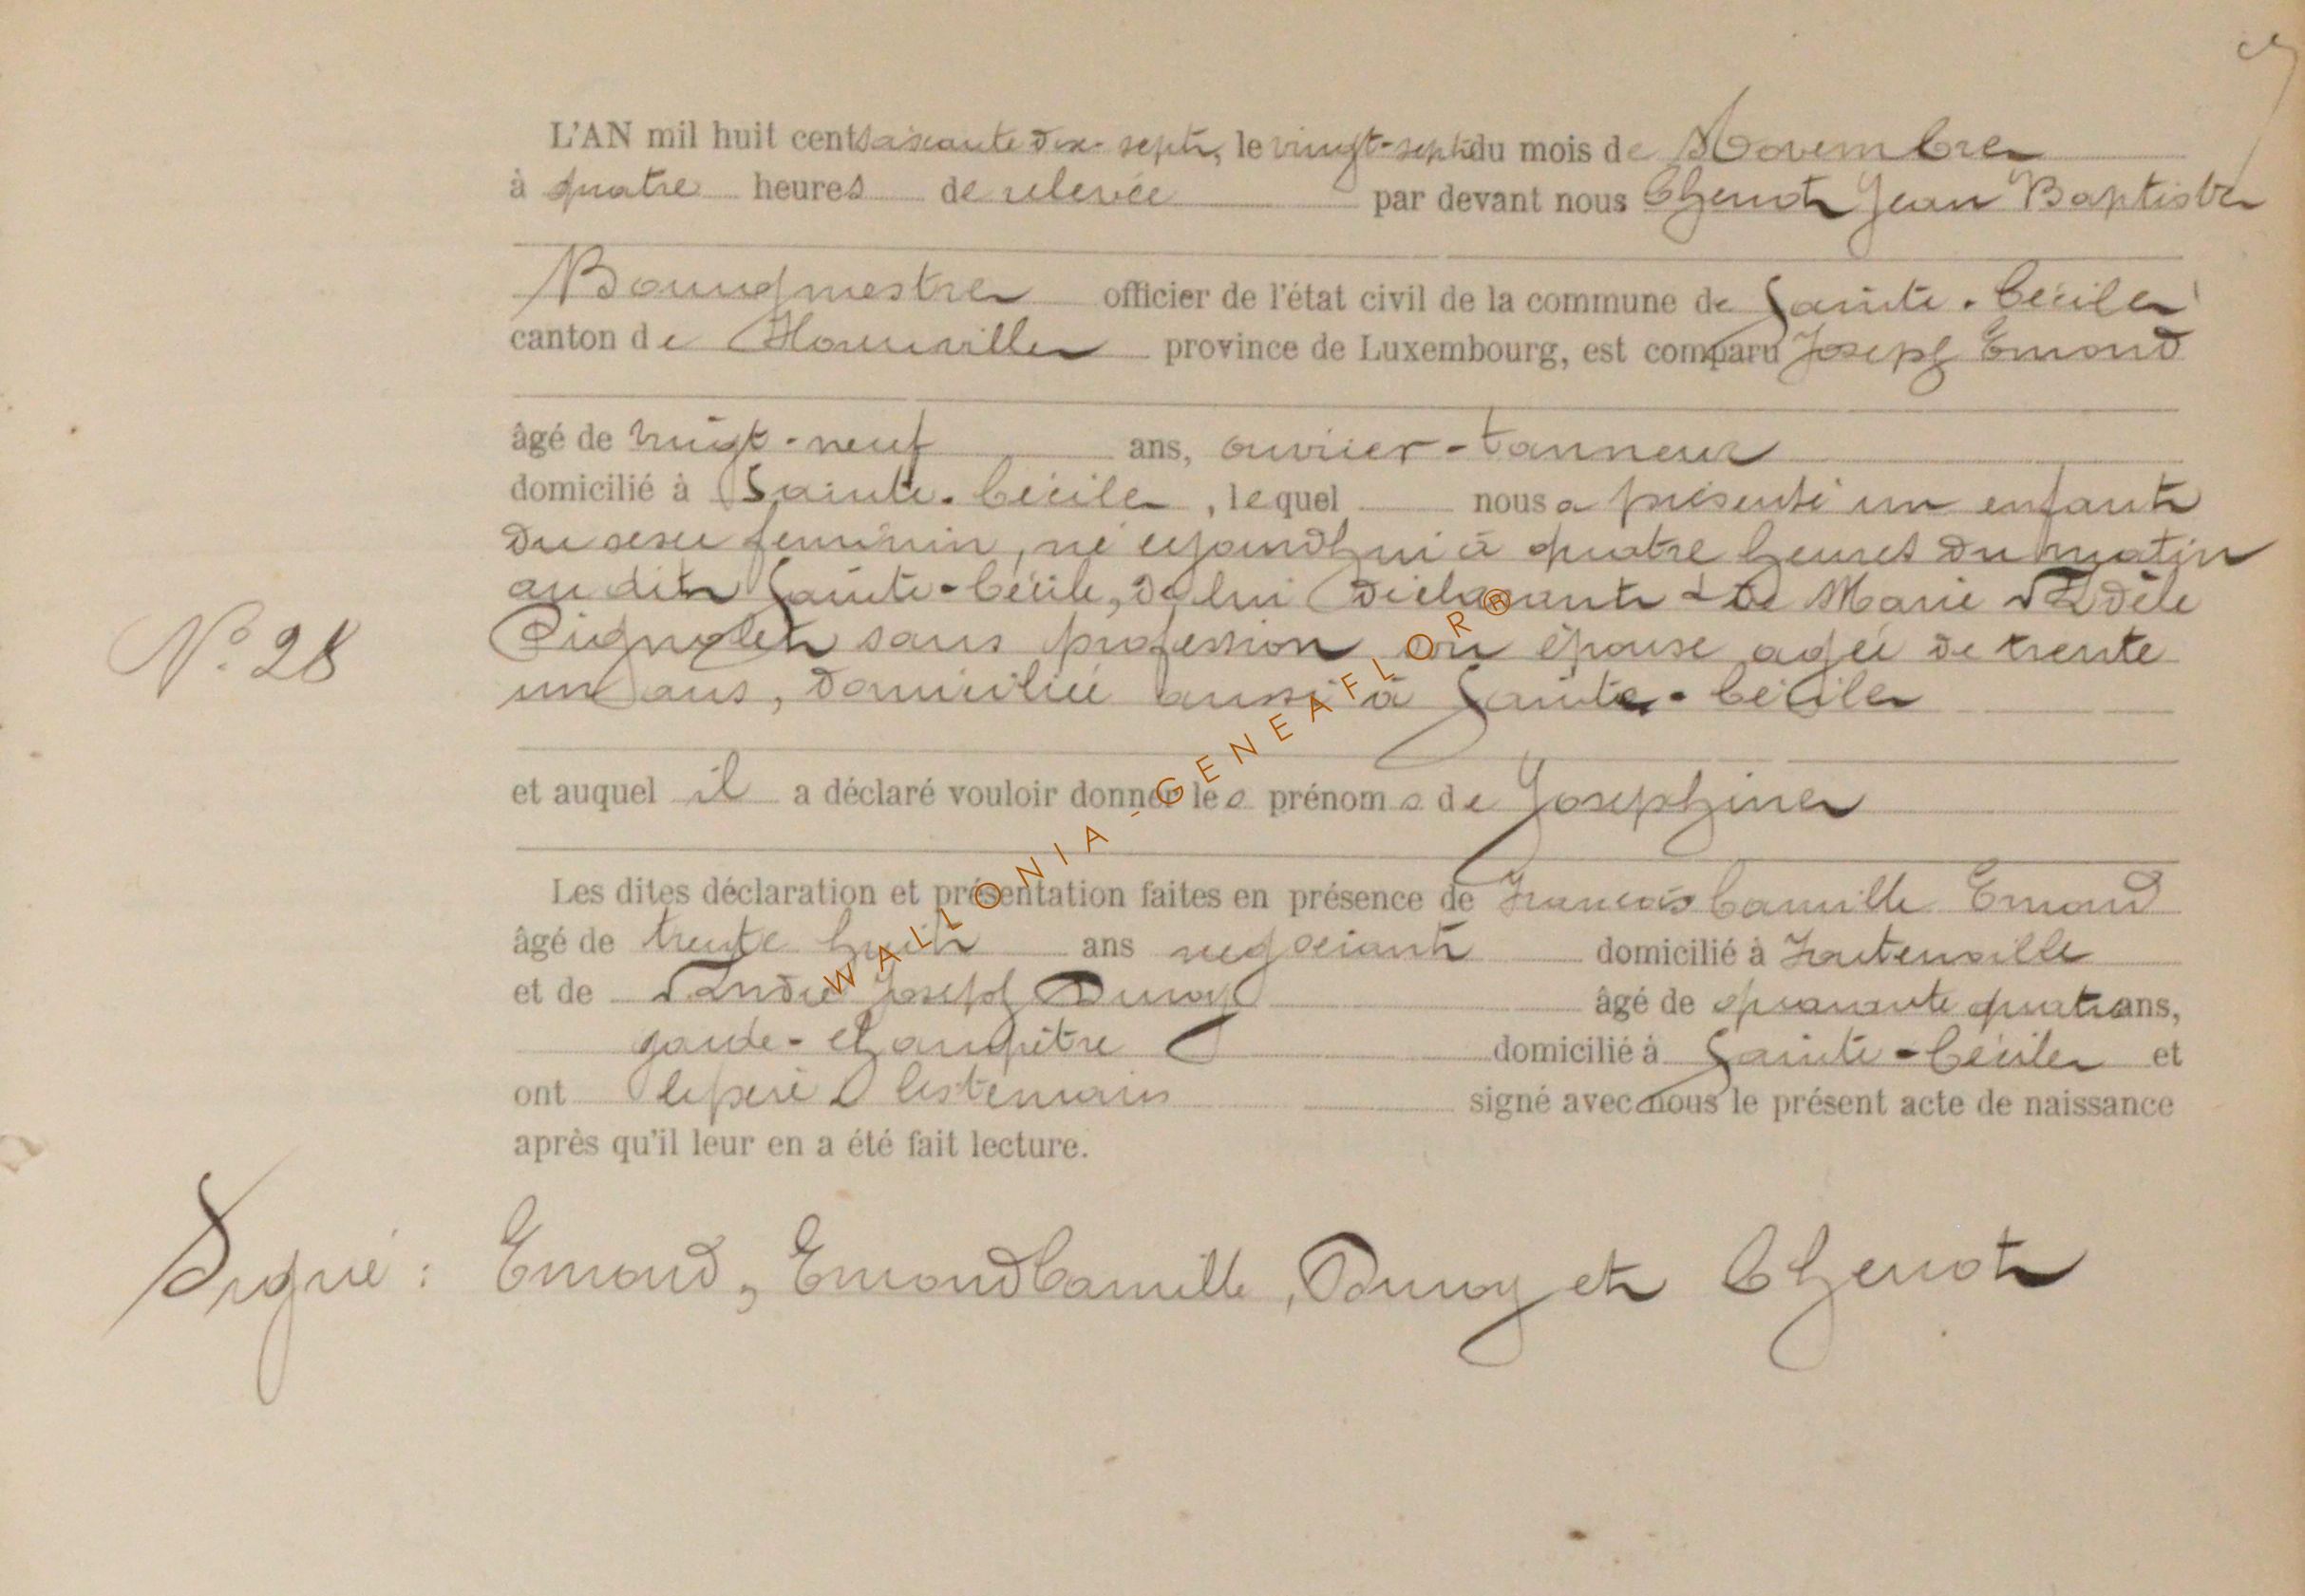 L'AN mil huit cent soixante dix-sept, le vingt-sept du mois de Novembre
à quatre heures de relevée par devant nous Chenot Jean Baptiste
Bourgmestre officier de l'état civil de la commune de Sainte-Cécile
canton de Florenville province de Luxembourg, est comparu Joseph Emond
âgé de vingt-neuf ans, ouvrier-tanneur
domicilié à Sainte-Cécile, lequel nous a présenté un enfant
du sexe feminin, né cejourd'hui à quatre heures du matin
au dit Sainte-Cécile, de lui déclarant & de Marie Adèle
Pignolet sans profession son épouse agée de trente
N° 28
un ans, domiciliée aussi à Sainte-Cécile
et auquel il a déclaré vouloir donner les prénoms de Josephine
Les dites déclaration et présentation faites en présence de François Camille Emond
âgé de trente huit ans negociant domicilié à Fontenoille
et de André Joseph Duroy âgé de quarante quatre ans,
garde-champêtre domicilié à Sainte-Cécile et
ont le père & les témoins signé avec nous le présent acte de naissance
après qu'il leur en a été fait lecture.
Signé : Emond, Emond Camille, Duroy et Chenot
WALLONIA-GENEAFLOR®